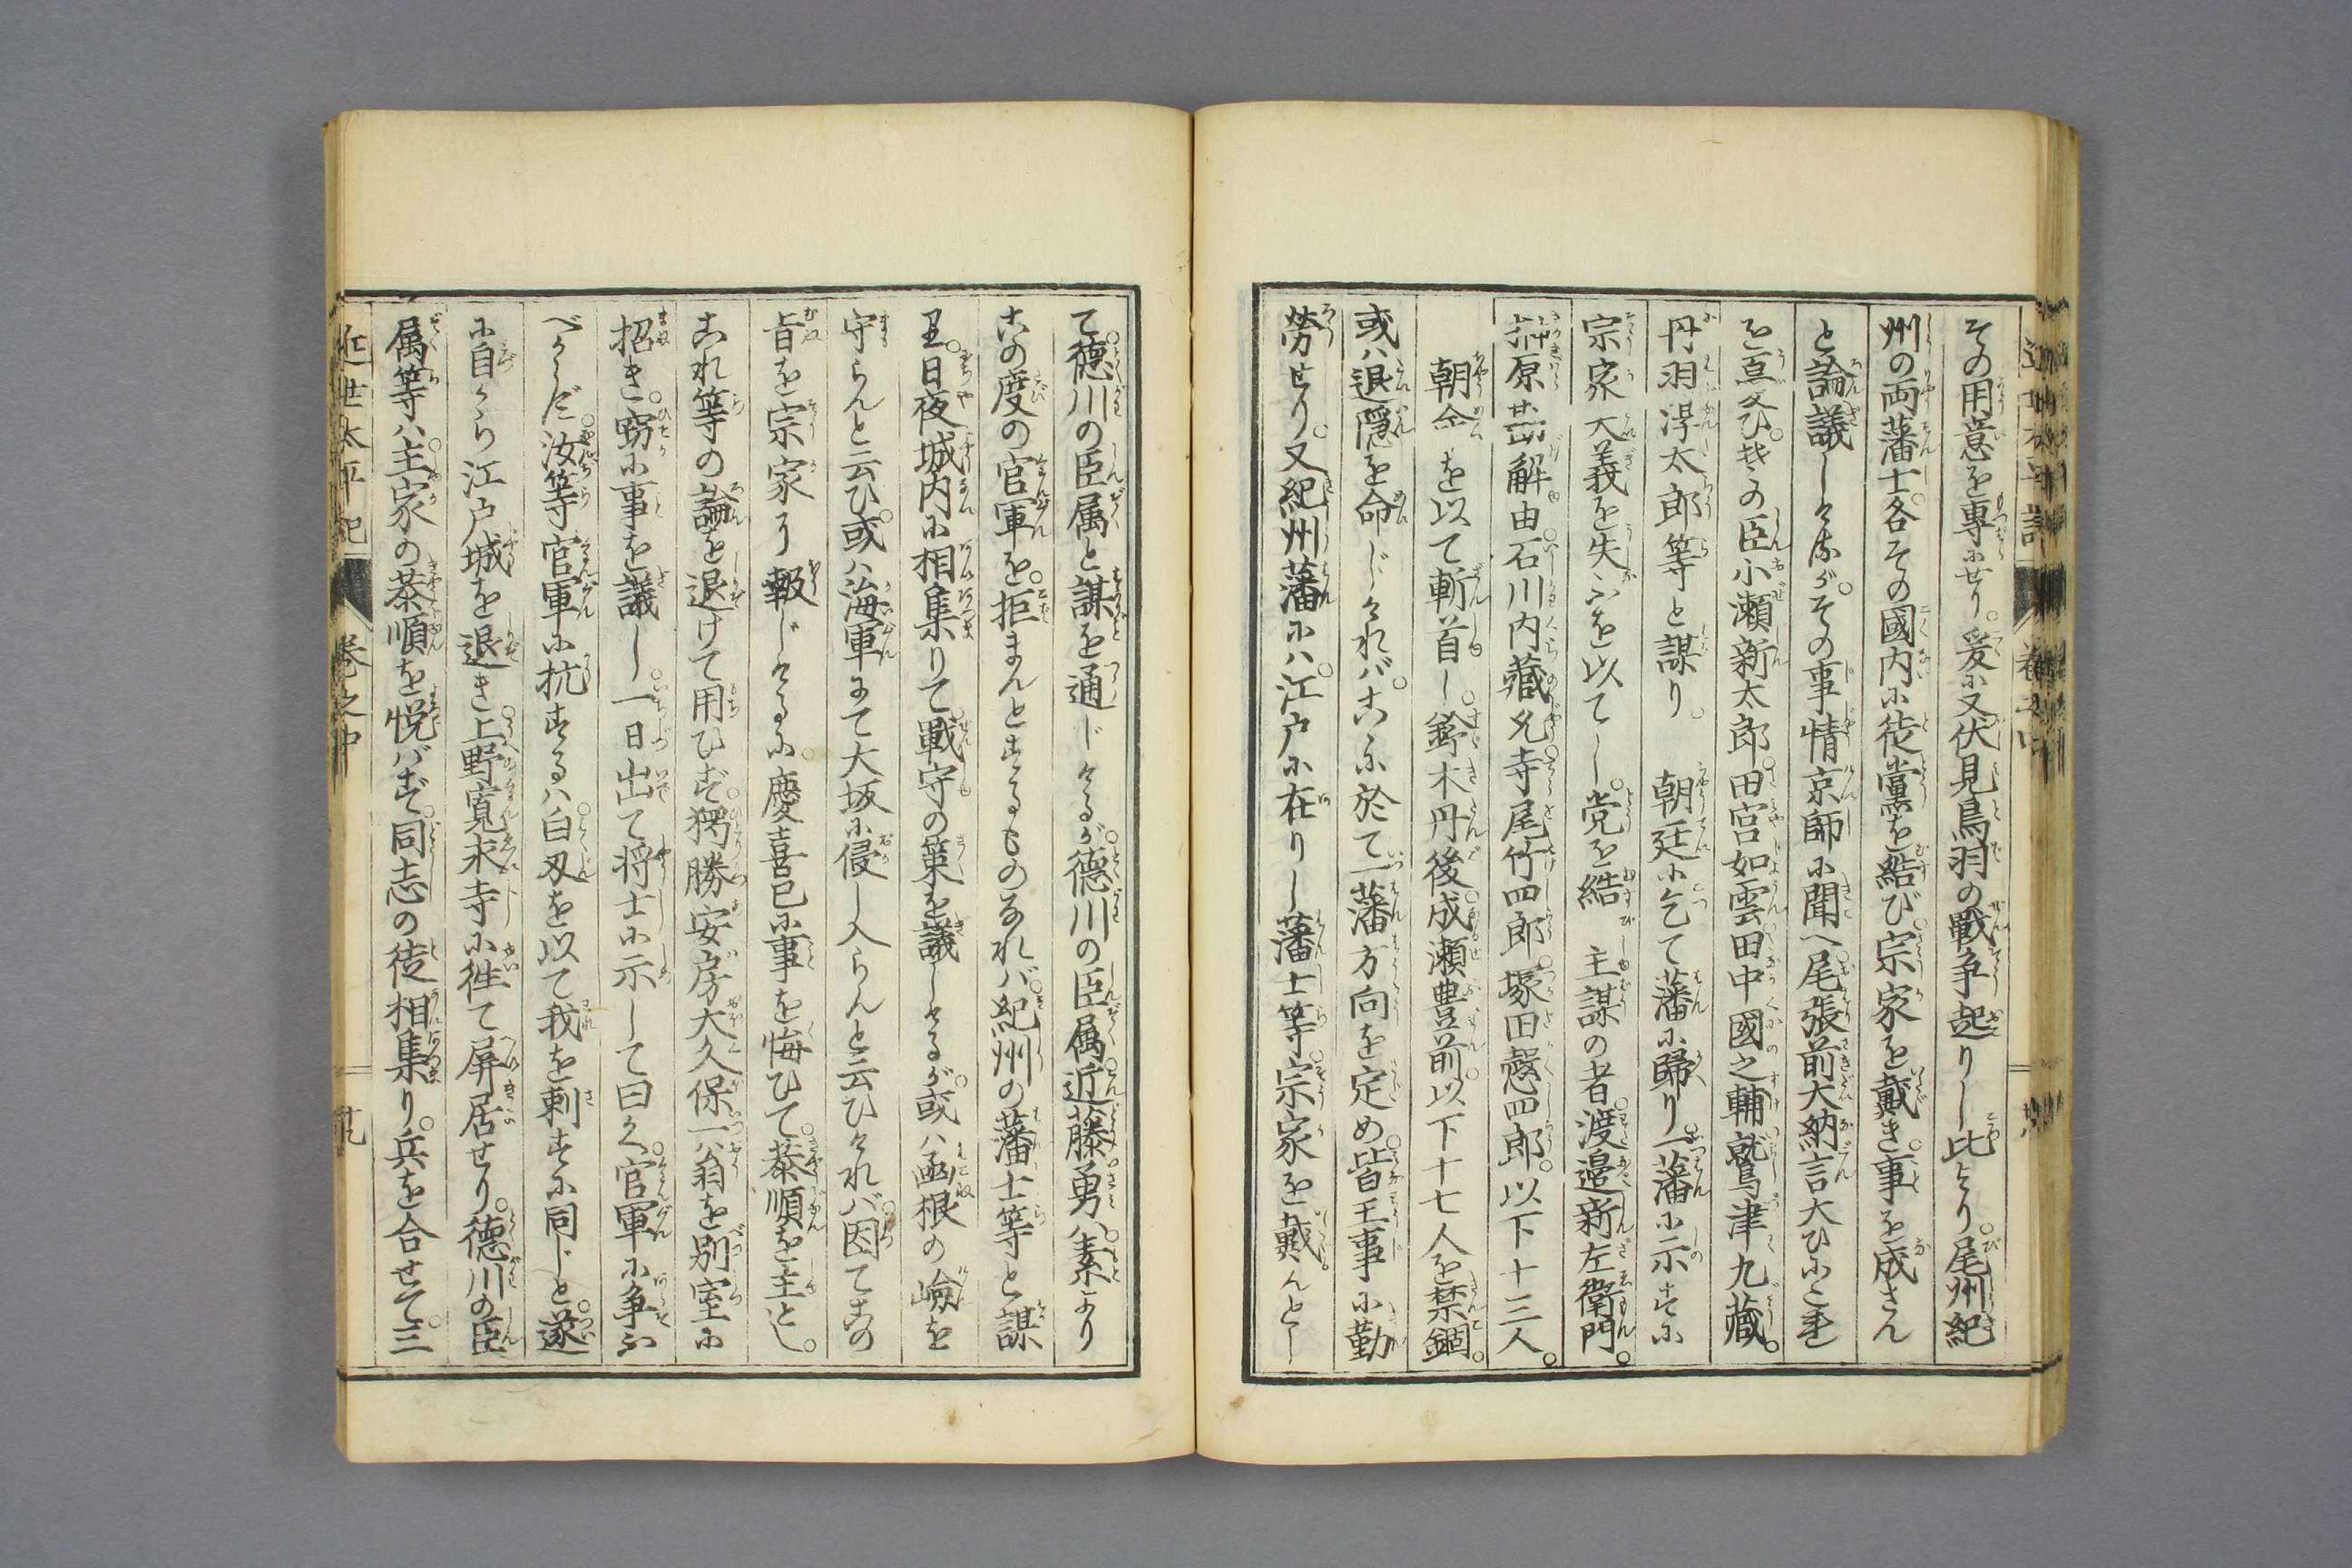 その用意を専にせり。爰に又伏見鳥羽の戦争起りし比より。尾州紀
州の両藩士。各その國内に徒黨を結び。宗家を戴き。事を成さん
と論議しける が。その事情京師に聞へ。尾張前大納言大ひにこれ
を憂ひ。その臣小瀬新太郎。田宮如雲。田中國之輔。鷲津九藏。
丹羽淳太郎等と謀り。朝廷に乞て藩に歸り。一藩に示すに
宗家大義を失ふを以てし。党を結 主謀の者。渡邉新左衛門。
榊原勘解由。石川内藏允。寺尾竹四郎。塚田愨四郎。以下十三人
朝命を以て斬首し。鈴木丹後。成瀬豊前。以下十七人を禁錮。
或ハ退隠を命じければ。こゝに於て一藩方向を定め。皆王事に勤
勞せり。又紀州藩にハ。江戸に在りし藩士等。宗家を戴んとし
て。徳川の臣属と謀を通じけるが。徳川の臣属。近藤勇ハ。素より
この度の官軍を。拒まんとするものなれバ。紀州の藩士等と謀
り。日夜城内に相集りて。戦守の策を議しけるが。或ハ凾根の嶮を
守らんと云ひ。或ハ海軍にて大坂に侵し入らんと云ひけれバ。因てこの
旨を宗家に報じけるに。慶喜已に事を悔ひて。恭順を主とし。
これ等の論を退けて用ひず。獨勝安房大久保一翁を別室に
招き。窃に事を議し。一日出て将士に示して曰く。官軍に争ふ
べからず。汝等官軍に抗するハ。白刃を以て我を刺すに同じと。遂
に自から江戸城を退き。上野寛永寺に徃て屏居せり。徳川の臣
属等ハ。主家の恭順を悦バず。同志の徒相集り。兵を合せて。三
近世太平記 巻之中 十九